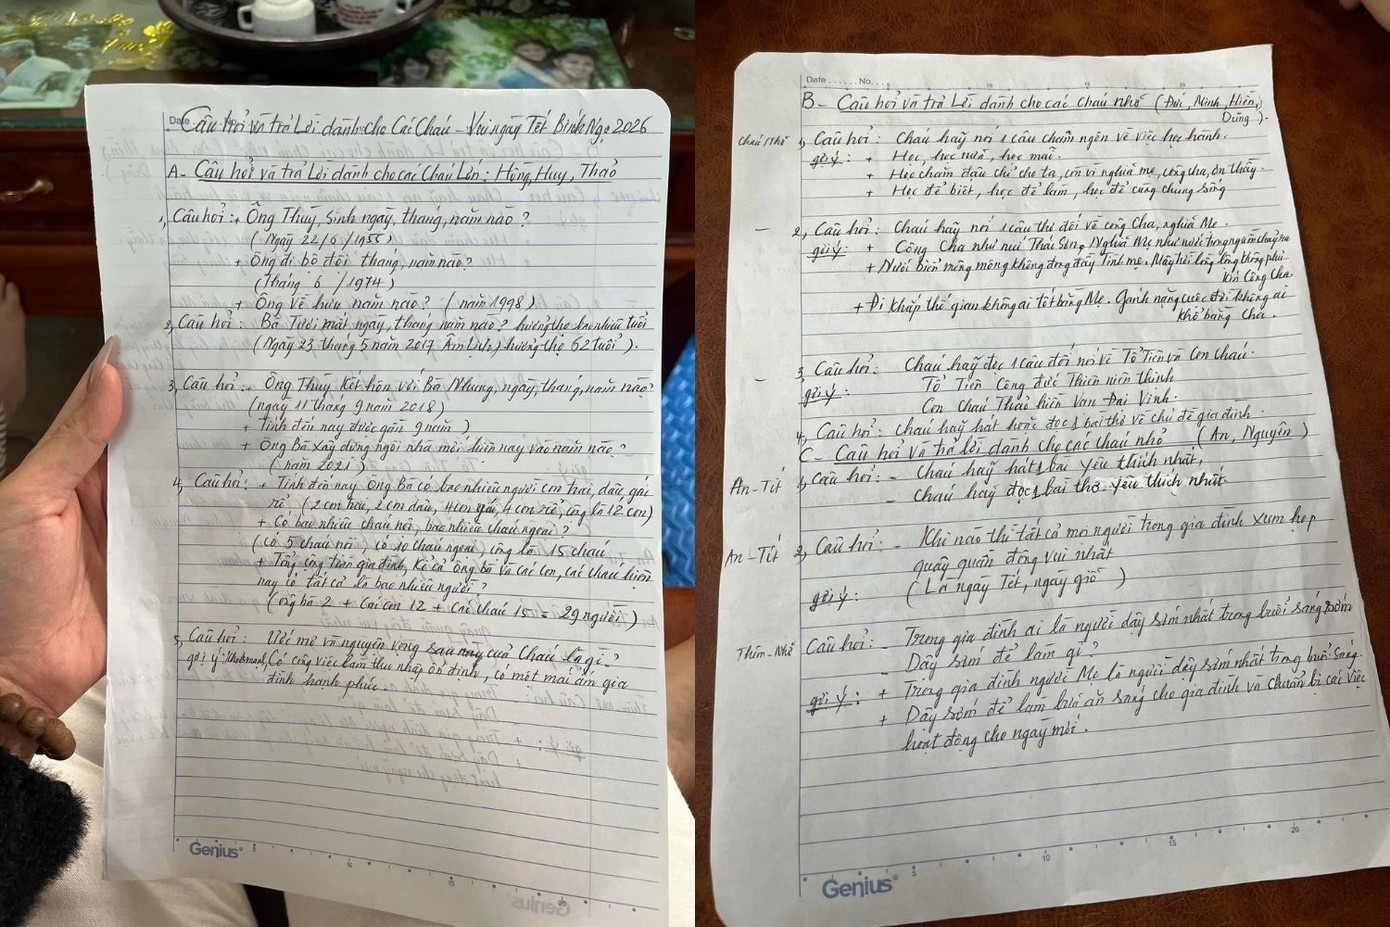 Date
Câu hỏi và trả Lời dành cho Các Cháu – Vui ngày Tết Bính Ngọ 2026
A- Câu hỏi và trả Lời dành cho các Cháu Lớn: Hồng, Huy, Thảo
1, Câu hỏi: + Ông Thuý, sinh ngày, tháng, năm nào?
(Ngày 22/6/1955)
+ Ông đi bộ đội tháng, năm nào?
(Tháng 6 /1974)
+ Ông về hưu năm nào? (năm 1998)
2, Câu hỏi: Bà Tươi mất ngày, tháng năm nào? hưởng thọ bao nhiêu tuổi
(Ngày 23 tháng 5 năm 2017 Âm Lịch) hưởng thọ 62 tuổi).
3, Câu hỏi: + Ông Thuý kết hôn với Bà Nhung, ngày, tháng, năm nào?
(ngày 11 tháng 9 năm 2018)
+ tính đến nay được gần 9 năm)
+ Ông Bà xây dựng ngôi nhà mới hiện nay vào năm nào?
(năm 2021)
4, Câu hỏi: + Tính đến nay Ông Bà có bao nhiêu người con trai, dâu, gái
rể (2 con trai, 2 con dâu, 4 con gái, 4 con rể, cộng là 12 con)
+ Có bao nhiêu cháu nội, bao nhiêu cháu ngoại?
(có 5 cháu nội, có 10 cháu ngoại) cộng là 15 cháu
+ Tổng cộng toàn gia đình, kể cả ông bà và các con, các cháu hiện
nay có tất cả là bao nhiêu người?
(ông bà 2 + Các con 12 + Các cháu 15 = 29 người)
5, Câu hỏi: Ước mơ và nguyện vọng sau này của Cháu là gì?
gợi ý: Có công việc làm thu nhập ổn định, có một mái ấm gia
đình hạnh phúc.
Genius
5
10
15
Date ...... No. ...
B- Câu hỏi và trả Lời dành cho các cháu nhỏ (Đức, Minh, Hiền,
Dũng).
Cháu Nhỏ 1, Câu hỏi: Cháu hãy nói 1 câu châm ngôn về việc học hành.
gợi ý: + Học, học nữa, học mãi.
+ Học chăm đâu chỉ cho ta, còn vì nghĩa mẹ, công cha, ơn thầy.
+ Học để biết, học để làm, học để cùng chung sống
– 2, Câu hỏi: Cháu hãy nói 1 câu thơ đối về công Cha, nghĩa Mẹ.
gợi ý: + Công Cha như núi Thái Sơn, Nghĩa Mẹ như nước trong nguồn chảy ra
+ Nước biển mênh mông không đong đầy tình mẹ. Mây trời lồng lộng không phủ
kín Công Cha.
+ Đi khắp thế gian không ai tốt bằng Mẹ. Gánh nặng cuộc đời không ai
khổ bằng cha.
– 3, Câu hỏi: Cháu hãy đọc 1 câu đối nói về Tổ Tiên và Con cháu.
gợi ý: Tổ Tiên Công đức Thiên niên thịnh
Con cháu Thảo hiền Vạn Đại Vinh.
4, Câu hỏi: cháu hãy hát hoặc đọc 1 bài thơ về chủ đề gia đình.
C- Câu hỏi và trả lời dành cho các cháu nhỏ (An, Nguyên)
An-Tít 1, Câu hỏi: - Cháu hãy hát 1 bài yêu thích nhất,
- Cháu hãy đọc 1 bài thơ yêu thích nhất
An-Tít 2, Câu hỏi: - Khi nào thì tất cả mọi người trong gia đình xum họp
quây quần đông vui nhất
gợi ý: (Là ngày Tết, ngày giỗ)
Thìn-Nhỏ Câu hỏi: - Trong gia đình ai là người dậy sớm nhất trong buổi sáng sớm
- Dậy sớm để làm gì?
gợi ý: + Trong gia đình người Mẹ là người dậy sớm nhất trong buổi sáng.
+ Dậy sớm để làm bữa ăn sáng cho gia đình và chuẩn bị các việc
hoạt động cho ngày mới.
Genius
5
10
15
20